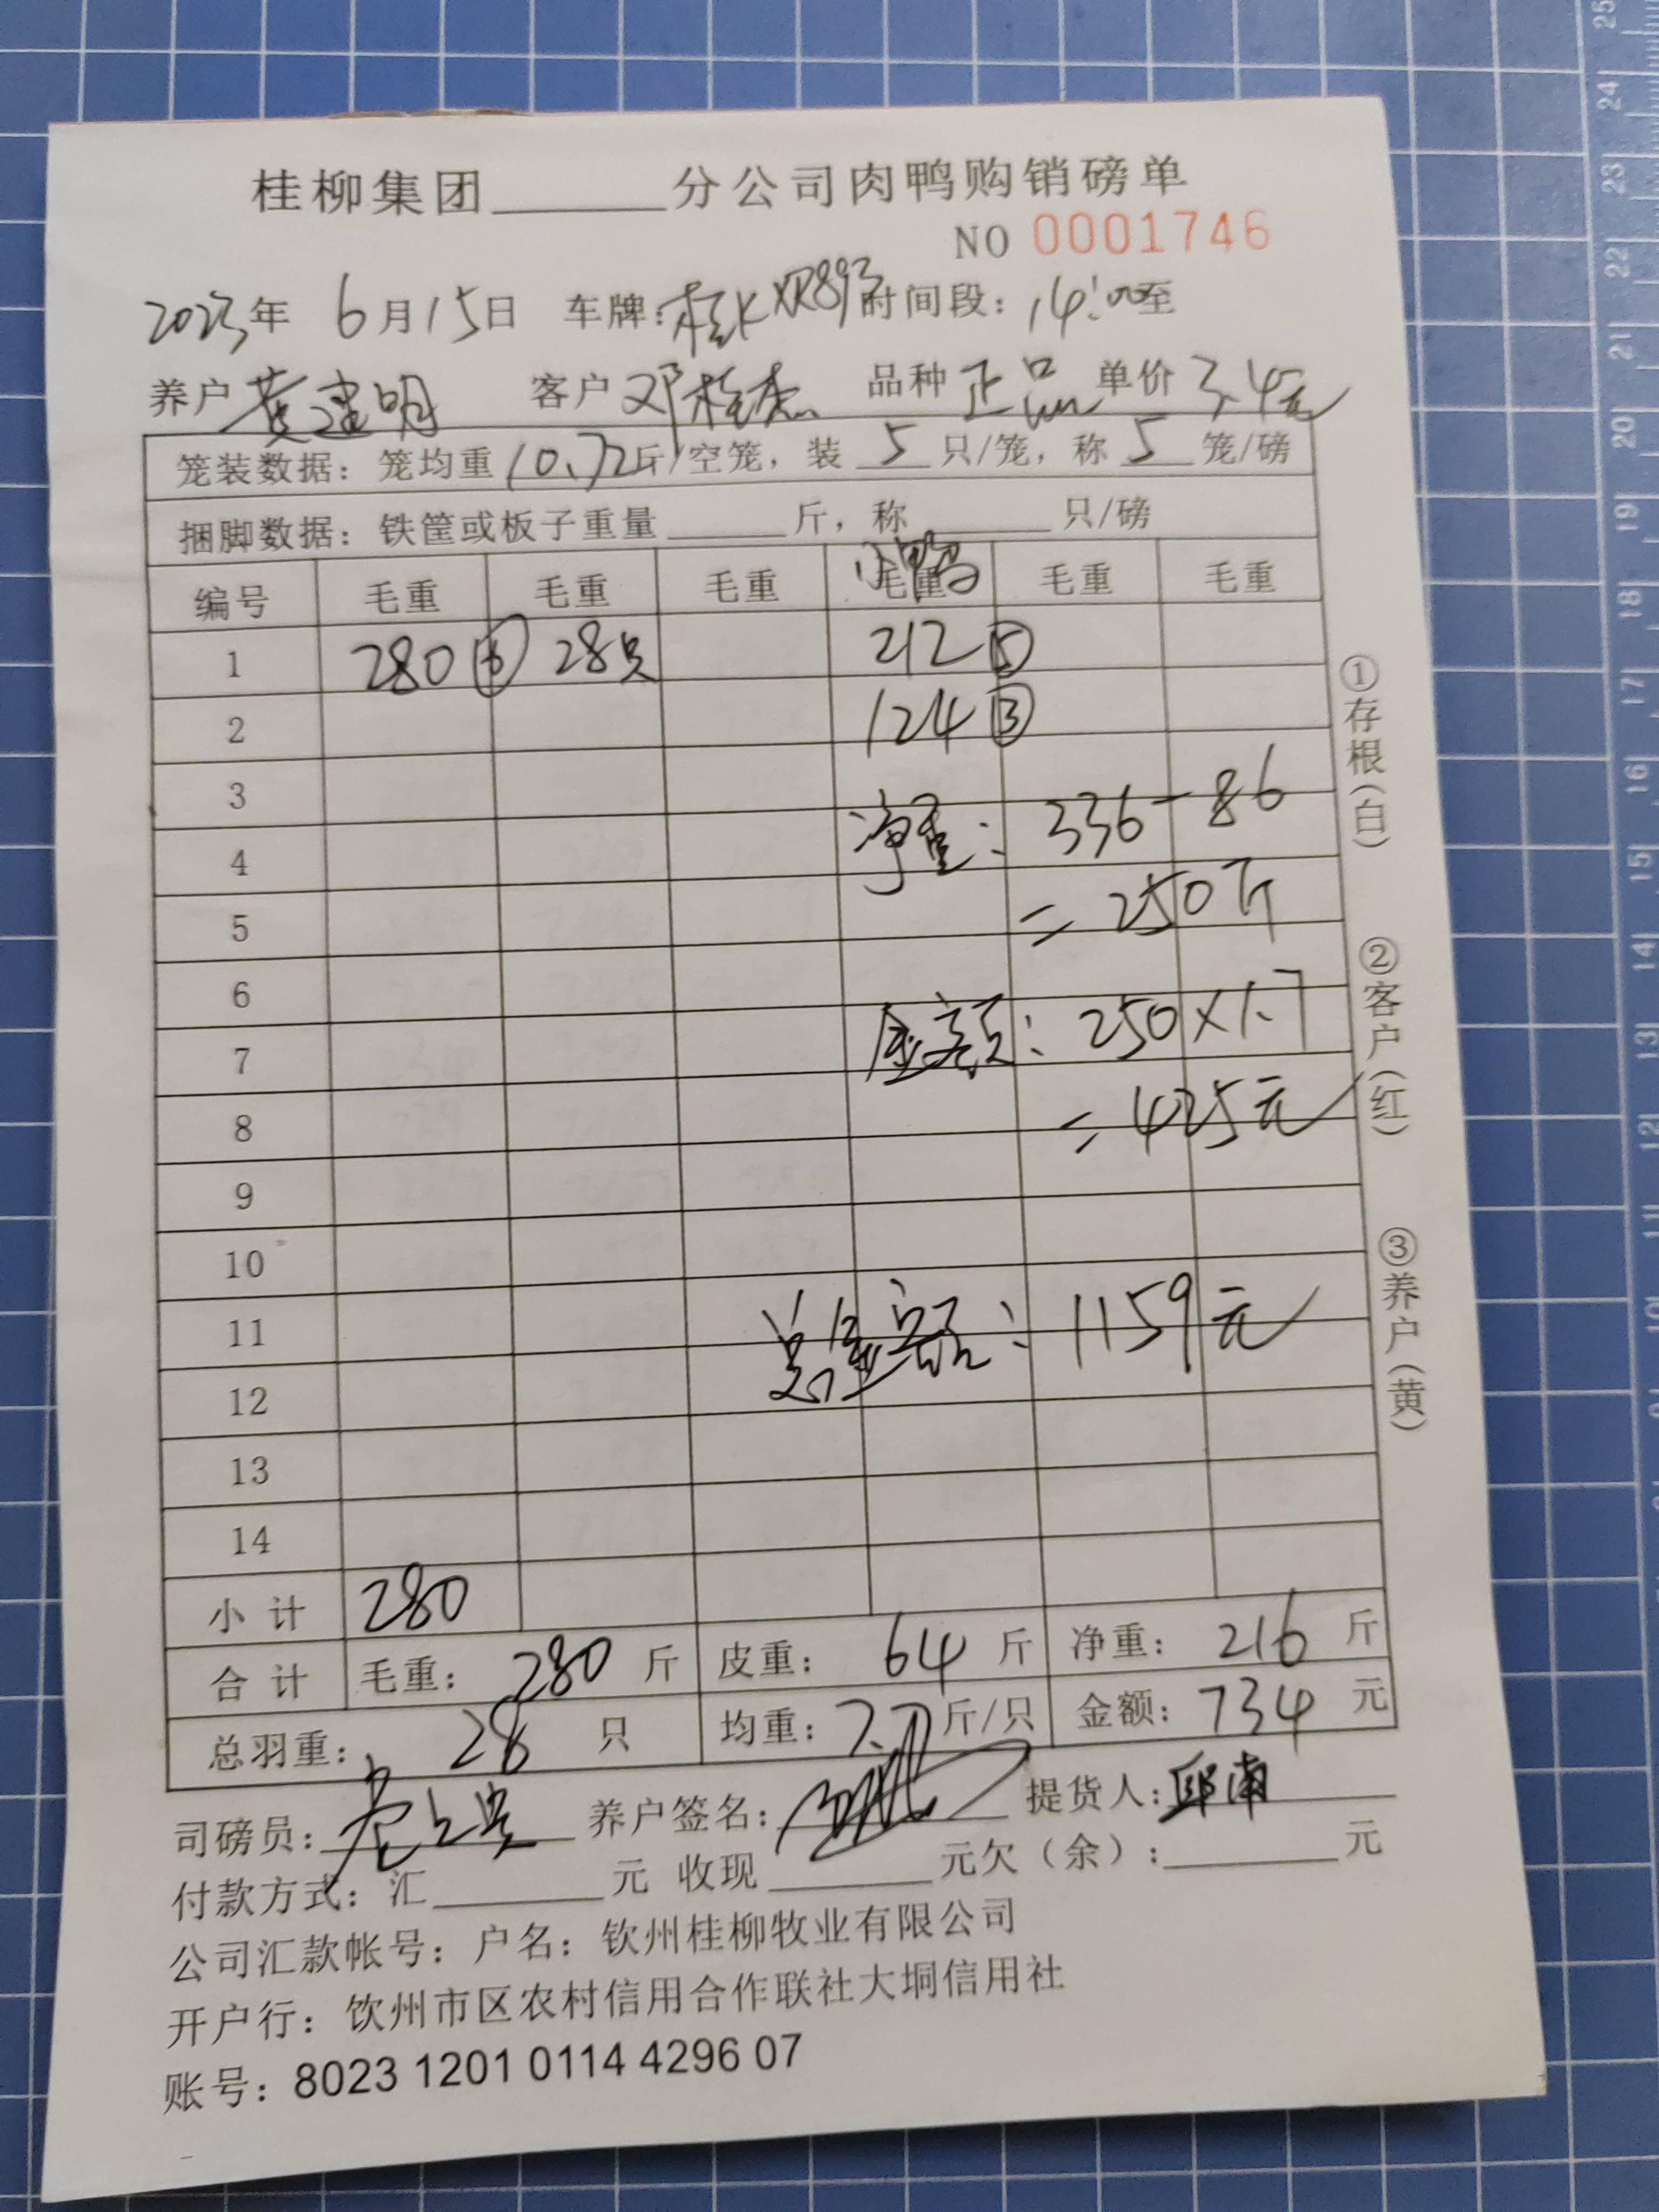 桂柳集团______分公司肉鸭购销磅单
NO 0001746
2023年 6月15日 车牌:桂KXR893时间段:14:00至
养户 黄建明 客户 邓桂杰 品种 正品 单价 3.4元
笼装数据:笼均重10.72斤/空笼,装 5 只/笼,称 5 笼/磅
捆脚数据:铁筐或板子重量______斤,称______只/磅
编号 毛重 毛重 毛重 毛重 小鸭 毛重 毛重
1 280⑥ 28只 212⑤
2 124③
3 净重: 336-86
4
5 =250斤
6
7 金额: 250×1.7
8 =425元
9
10
11 总金额: 1159元
12
13
14
小计 280
合计 毛重: 280 斤 皮重: 64 斤 净重: 216 斤
总羽重: 28 只 均重: 7.7 斤/只 金额: 734 元
司磅员: 养户签名: 提货人:邱南
付款方式:汇______元 收现______元欠(余):______元
公司汇款帐号:户名:钦州桂柳牧业有限公司
开户行:钦州市区农村信用合作联社大垌信用社
账号:8023 1201 0114 4296 07
①存根(白) ②客户(红) ③养户(黄)
25
24
23
22
21
20
19
18
17
16
15
14
13
12
11
10